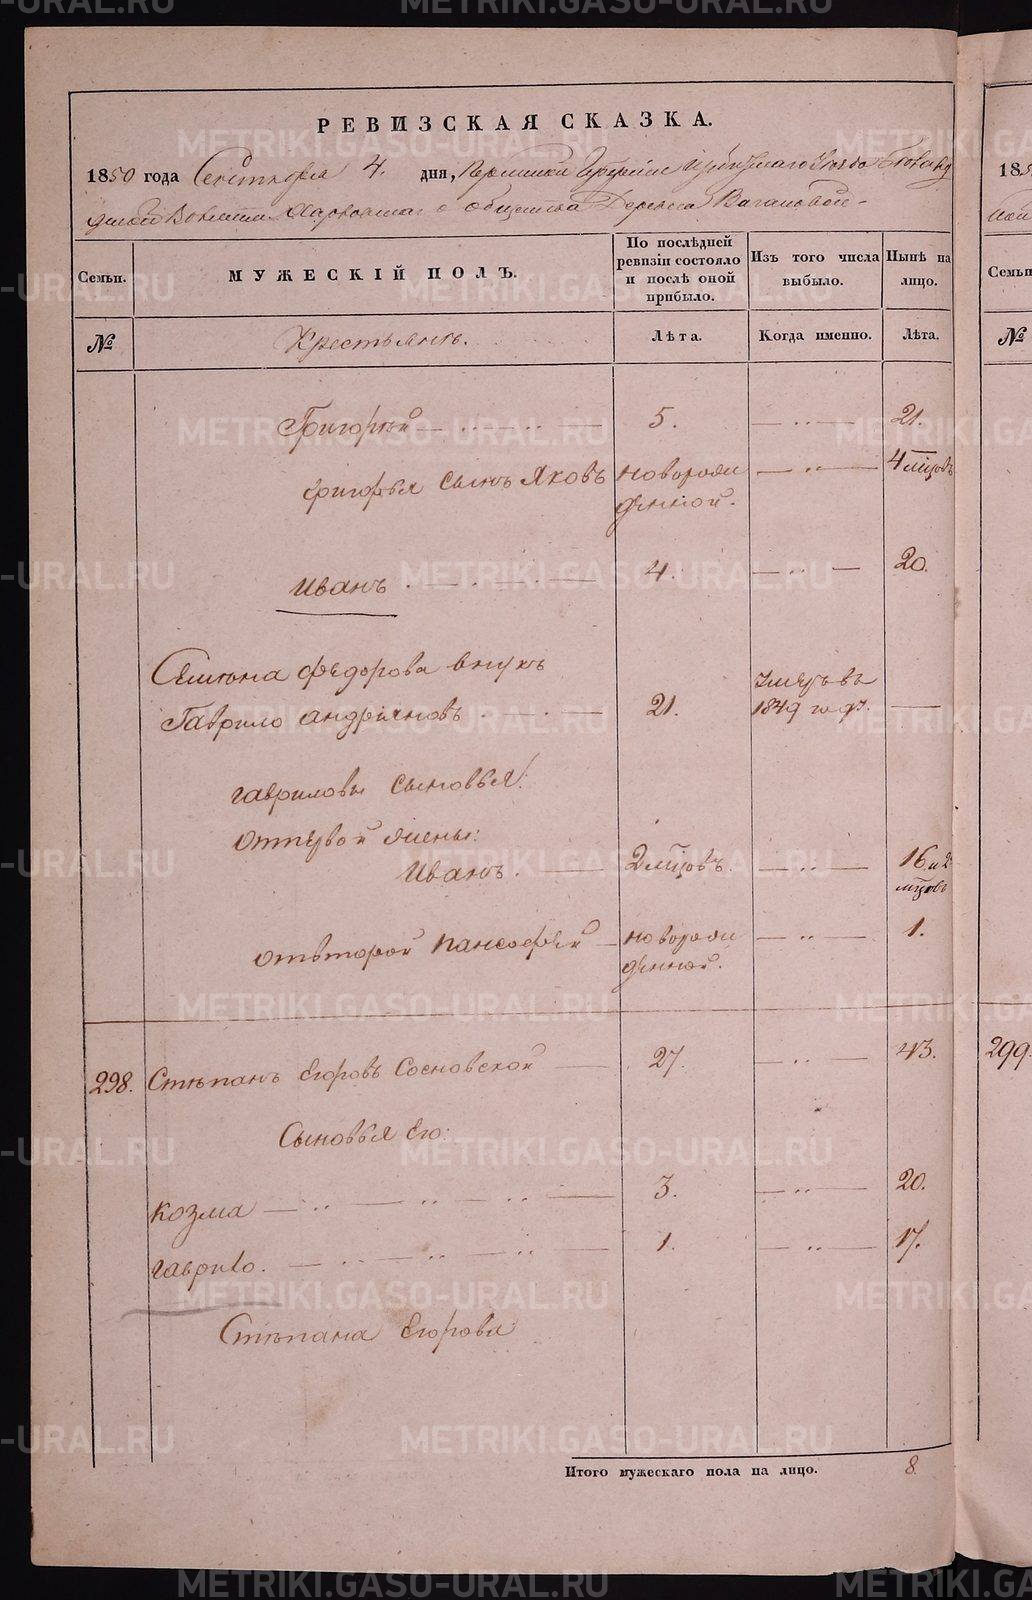 РЕВИЗСКАЯ СКАЗКА.
1850 года Сентября 4. дня, Пермской Губернии Ирбитскаго Уезда
Волости общества Деревни Вагановой
Семьи. МУЖЕСКІЙ ПОЛЪ. По послѣдней ревизіи состояло и послѣ оной прибыло. Изъ того числа выбыло. Нынѣ на лицо.
№ Крестьянъ. Лѣта. Когда именно. Лѣта.
Григорей 5. 21.
Григорья сынъ Яковъ новорожденной. 4 мцовъ
Иванъ 4. 20.
Семена Федорова внукъ
Гаврило Андріяновъ 21. умеръ въ 1849 году.
Гавриловы сыновья:
от первой жены:
Иванъ. 2 мцовъ. 16 и 2 мцовъ
отвторой Пансофей новорожденной. 1.
298. Степанъ Егоровъ Сосновской 27. 43.
Сыновья его:
Козма 3. 20.
Гаврило. 1. 17.
Степана Егорова
Итого мужескаго пола на лицо. 8.
185
Семьи
№
299.
METRIKI.GASO-URAL.RU